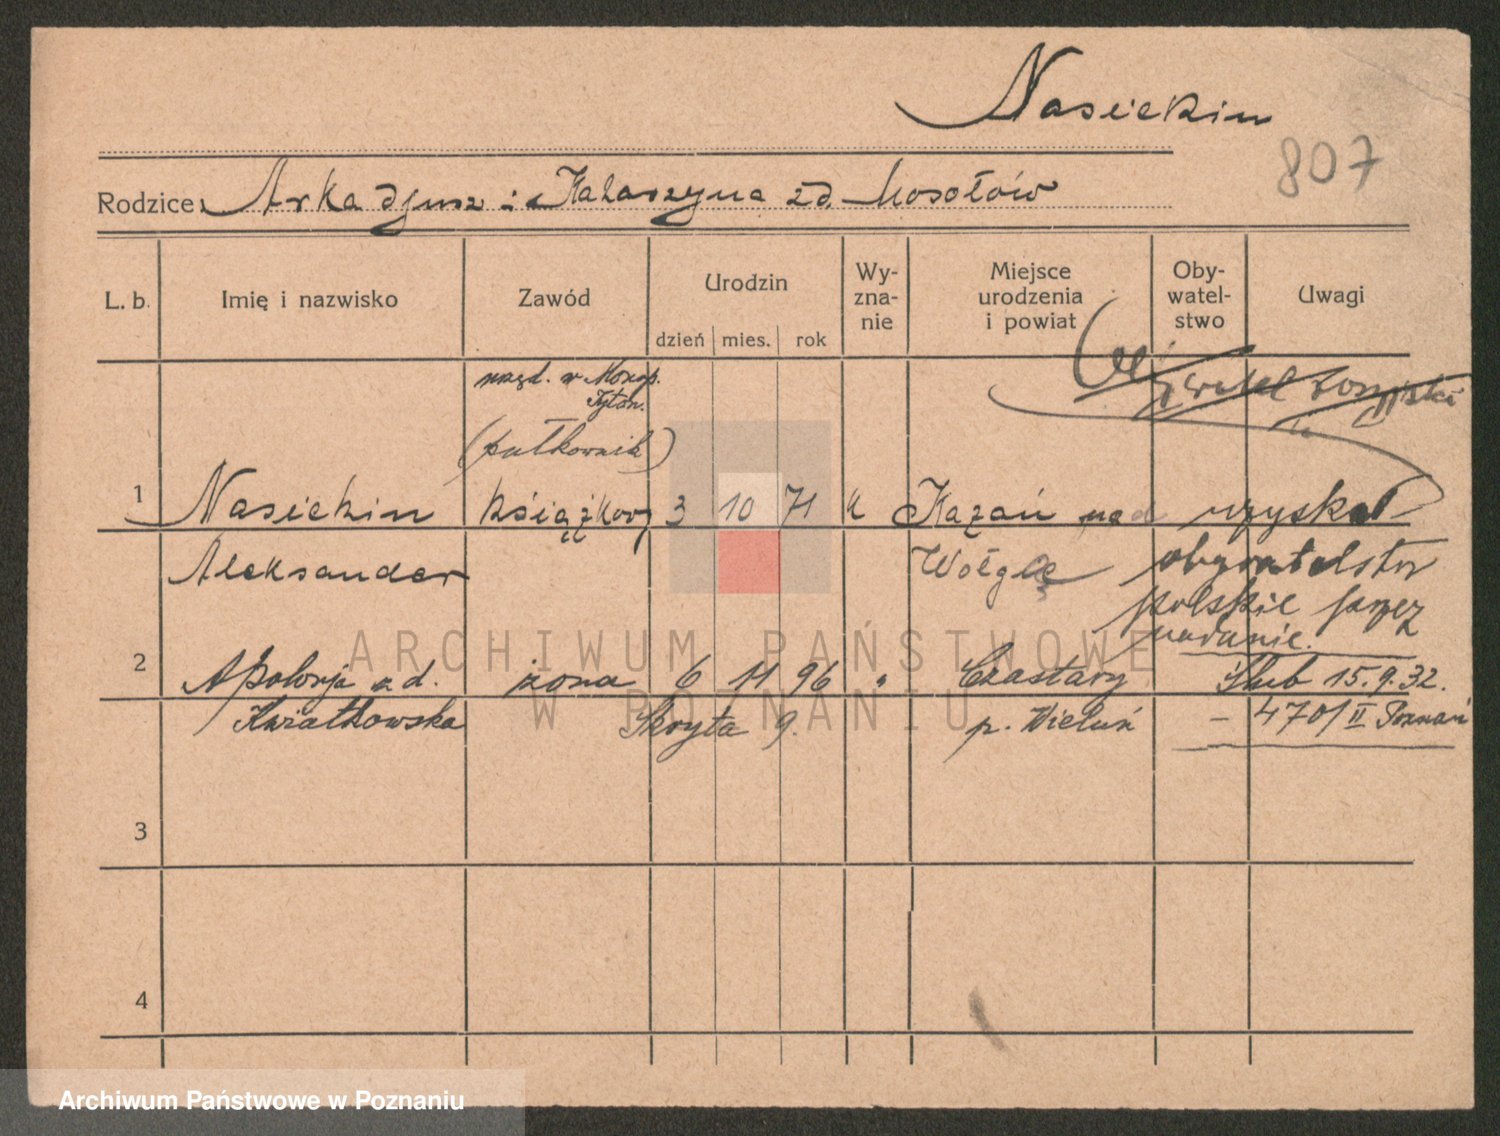 Nasiekin
807
Rodzice: Arkadjusz i Katarzyna zd. Mosołów
L. b. Imię i nazwisko Zawód Urodzin dzień mies. rok Wy-zna-nie Miejsce urodzenia i powiat Oby-watel-stwo Uwagi
w Monop.
Tyton.
Obywatel rosyjski
(pułkownik)
1 Nasiekin książkowy 3 10 71 k Kazań nad uzyskał
Aleksander Wołgą obywatelstwo
polskie przez
nadanie.
2 Apolonja zd. żona 6 11 96 " Czastary Ślub 15.9.32.
Kwiatkowska Skryta 9. p. Wieluń – 470/II Poznań
3
4
ARCHIWUM PAŃSTWOWE
W POZNANIU
Archiwum Państwowe w Poznaniu